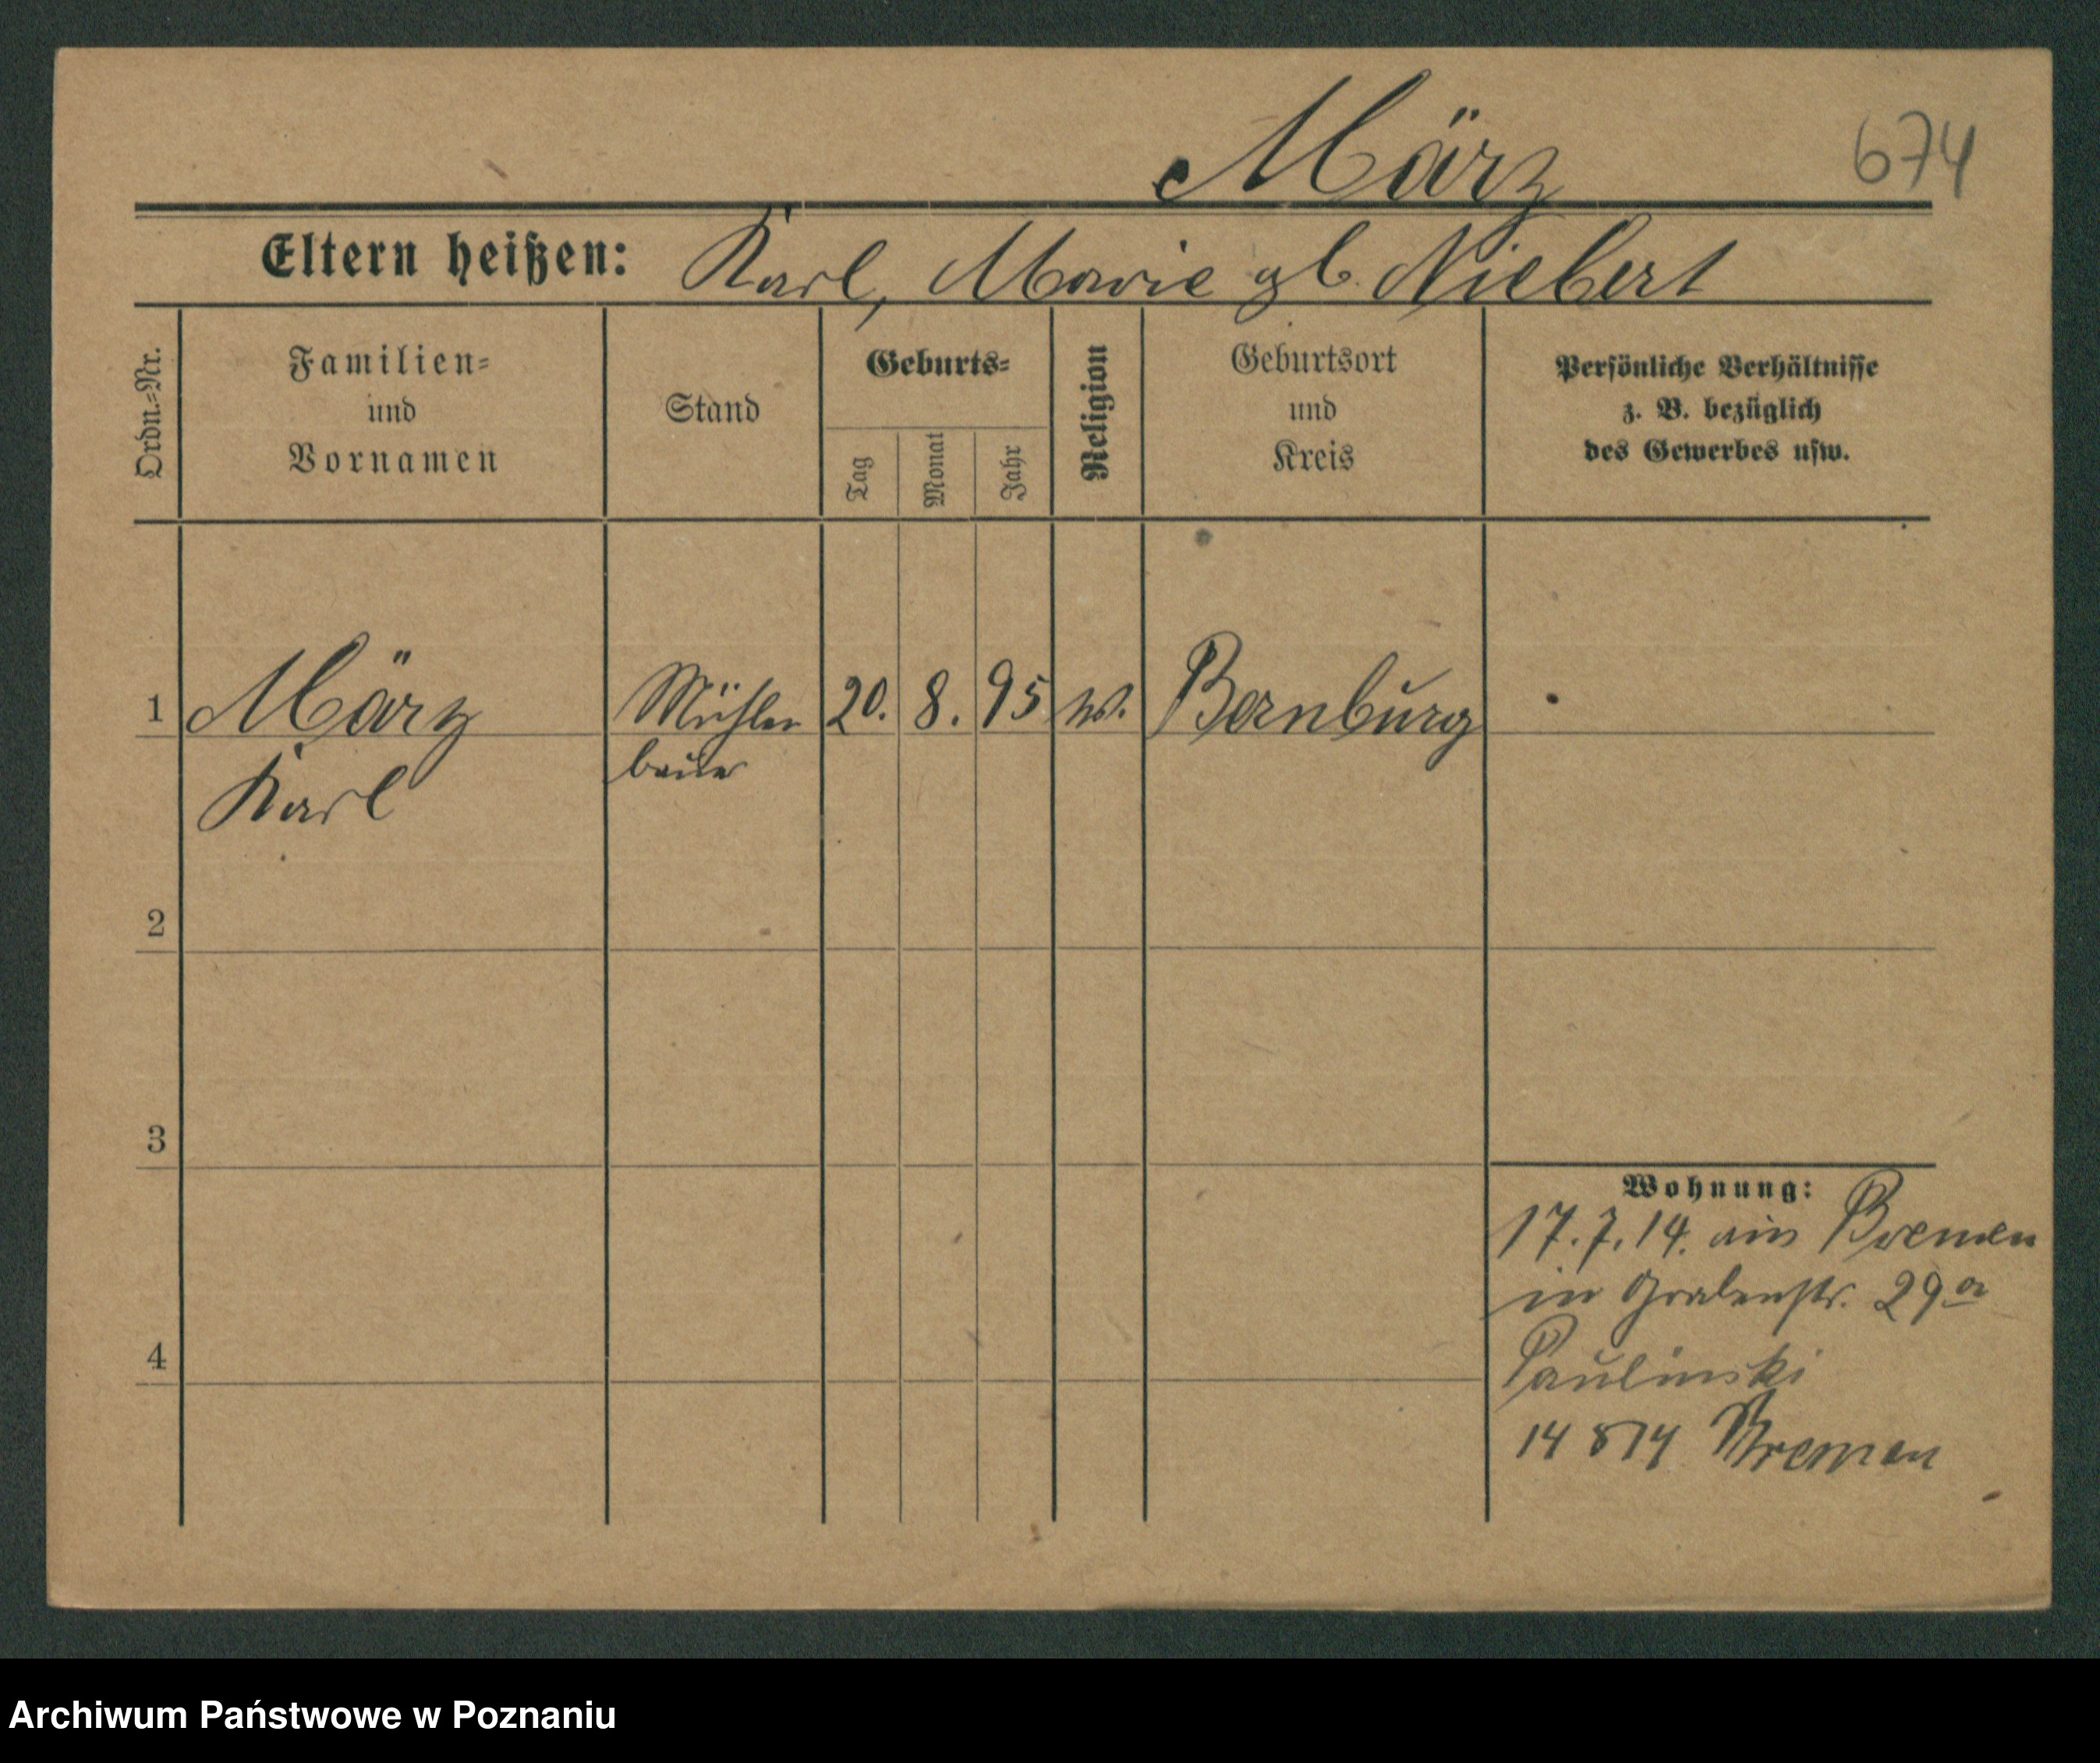 März
674
Eltern heißen: Karl, Marie gb. Niebert
Ordn.=Nr.
Familien=
und
Vornamen
Stand
Geburts=
Tag
Monat
Jahr
Religion
Geburtsort
und
Kreis
Persönliche Verhältnisse
z. B. bezüglich
des Gewerbes usw.
1 März Mühlen 20. 8. 95 Bernburg
Karl bauer
2
3
4
Wohnung:
17.7.14. aus Bremen
in Grabenstr. 29a
Paulinski
14 8 14 Bremen
Archiwum Państwowe w Poznaniu